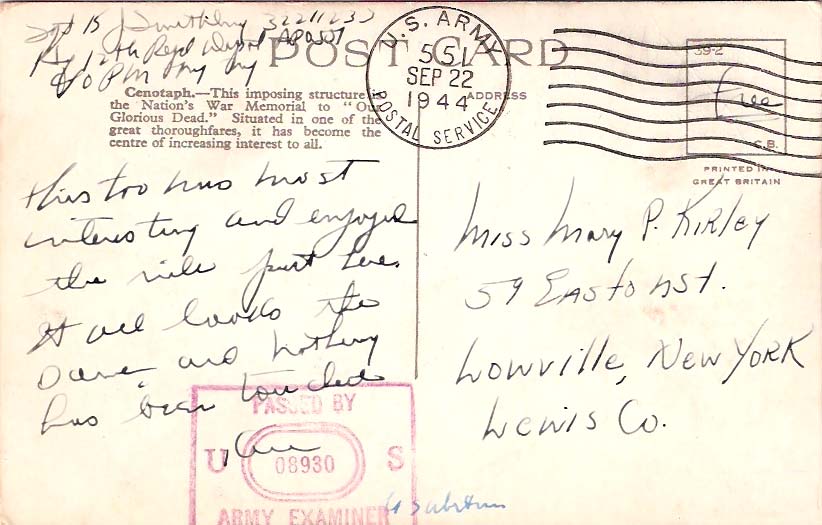 32211233
Hq 12th Repl Depot APO 551
c/o PM NY NY
POST CARD
Cenotaph.—This imposing structure
the Nation's War Memorial to "Our
Glorious Dead." Situated in one of the
great thoroughfares, it has become the
centre of increasing interest to all.
U.S. ARMY
551
SEP 22
1944
POSTAL SERVICE
ADDRESS
39-2
Free
C.B.
PRINTED IN
GREAT BRITAIN
this too was most
interesting and enjoyed
the ride past here.
It all looks the
same and nothing
has been touched
Miss Mary P. Kirley
59 Easton St.
Lowville, New York
Lewis Co.
PASSED BY
U 08930 S
ARMY EXAMINER